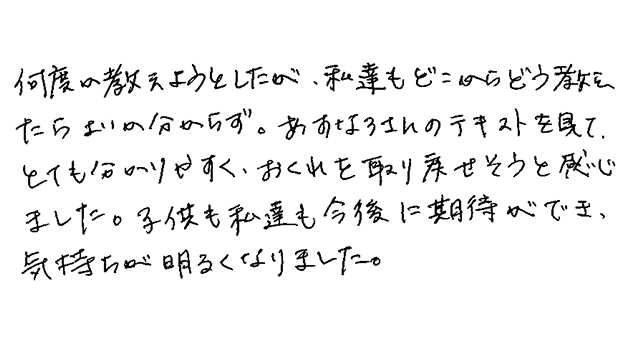 何度か教えようとしたが、私達もどこからどう教え
たらよいか分からず。あすなろさんのテキストを見て、
とても分かりやすく、おくれを取り戻せそうと感じ
ました。子供も私達も今後に期待ができ、
気持ちが明るくなりました。